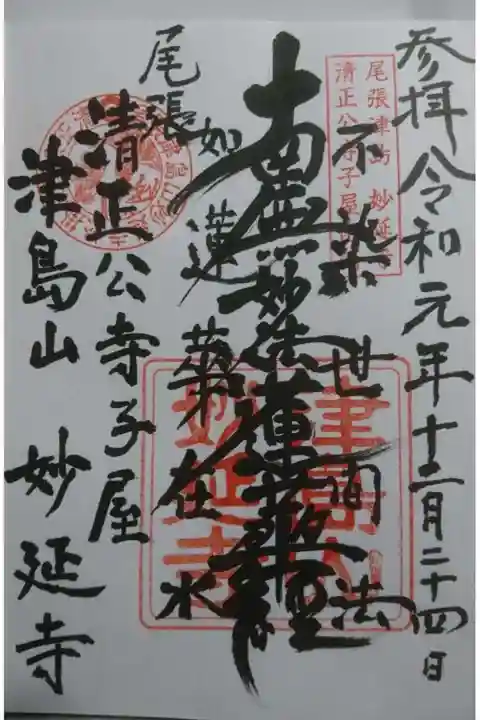 参拝令和元年十二月二十四日
尾張津島 妙延寺
清正公寺子屋
不染世間法
南無妙法蓮華経
如蓮華在水
尾張
清正公寺子屋
津島山 妙延寺
津島山
妙延寺